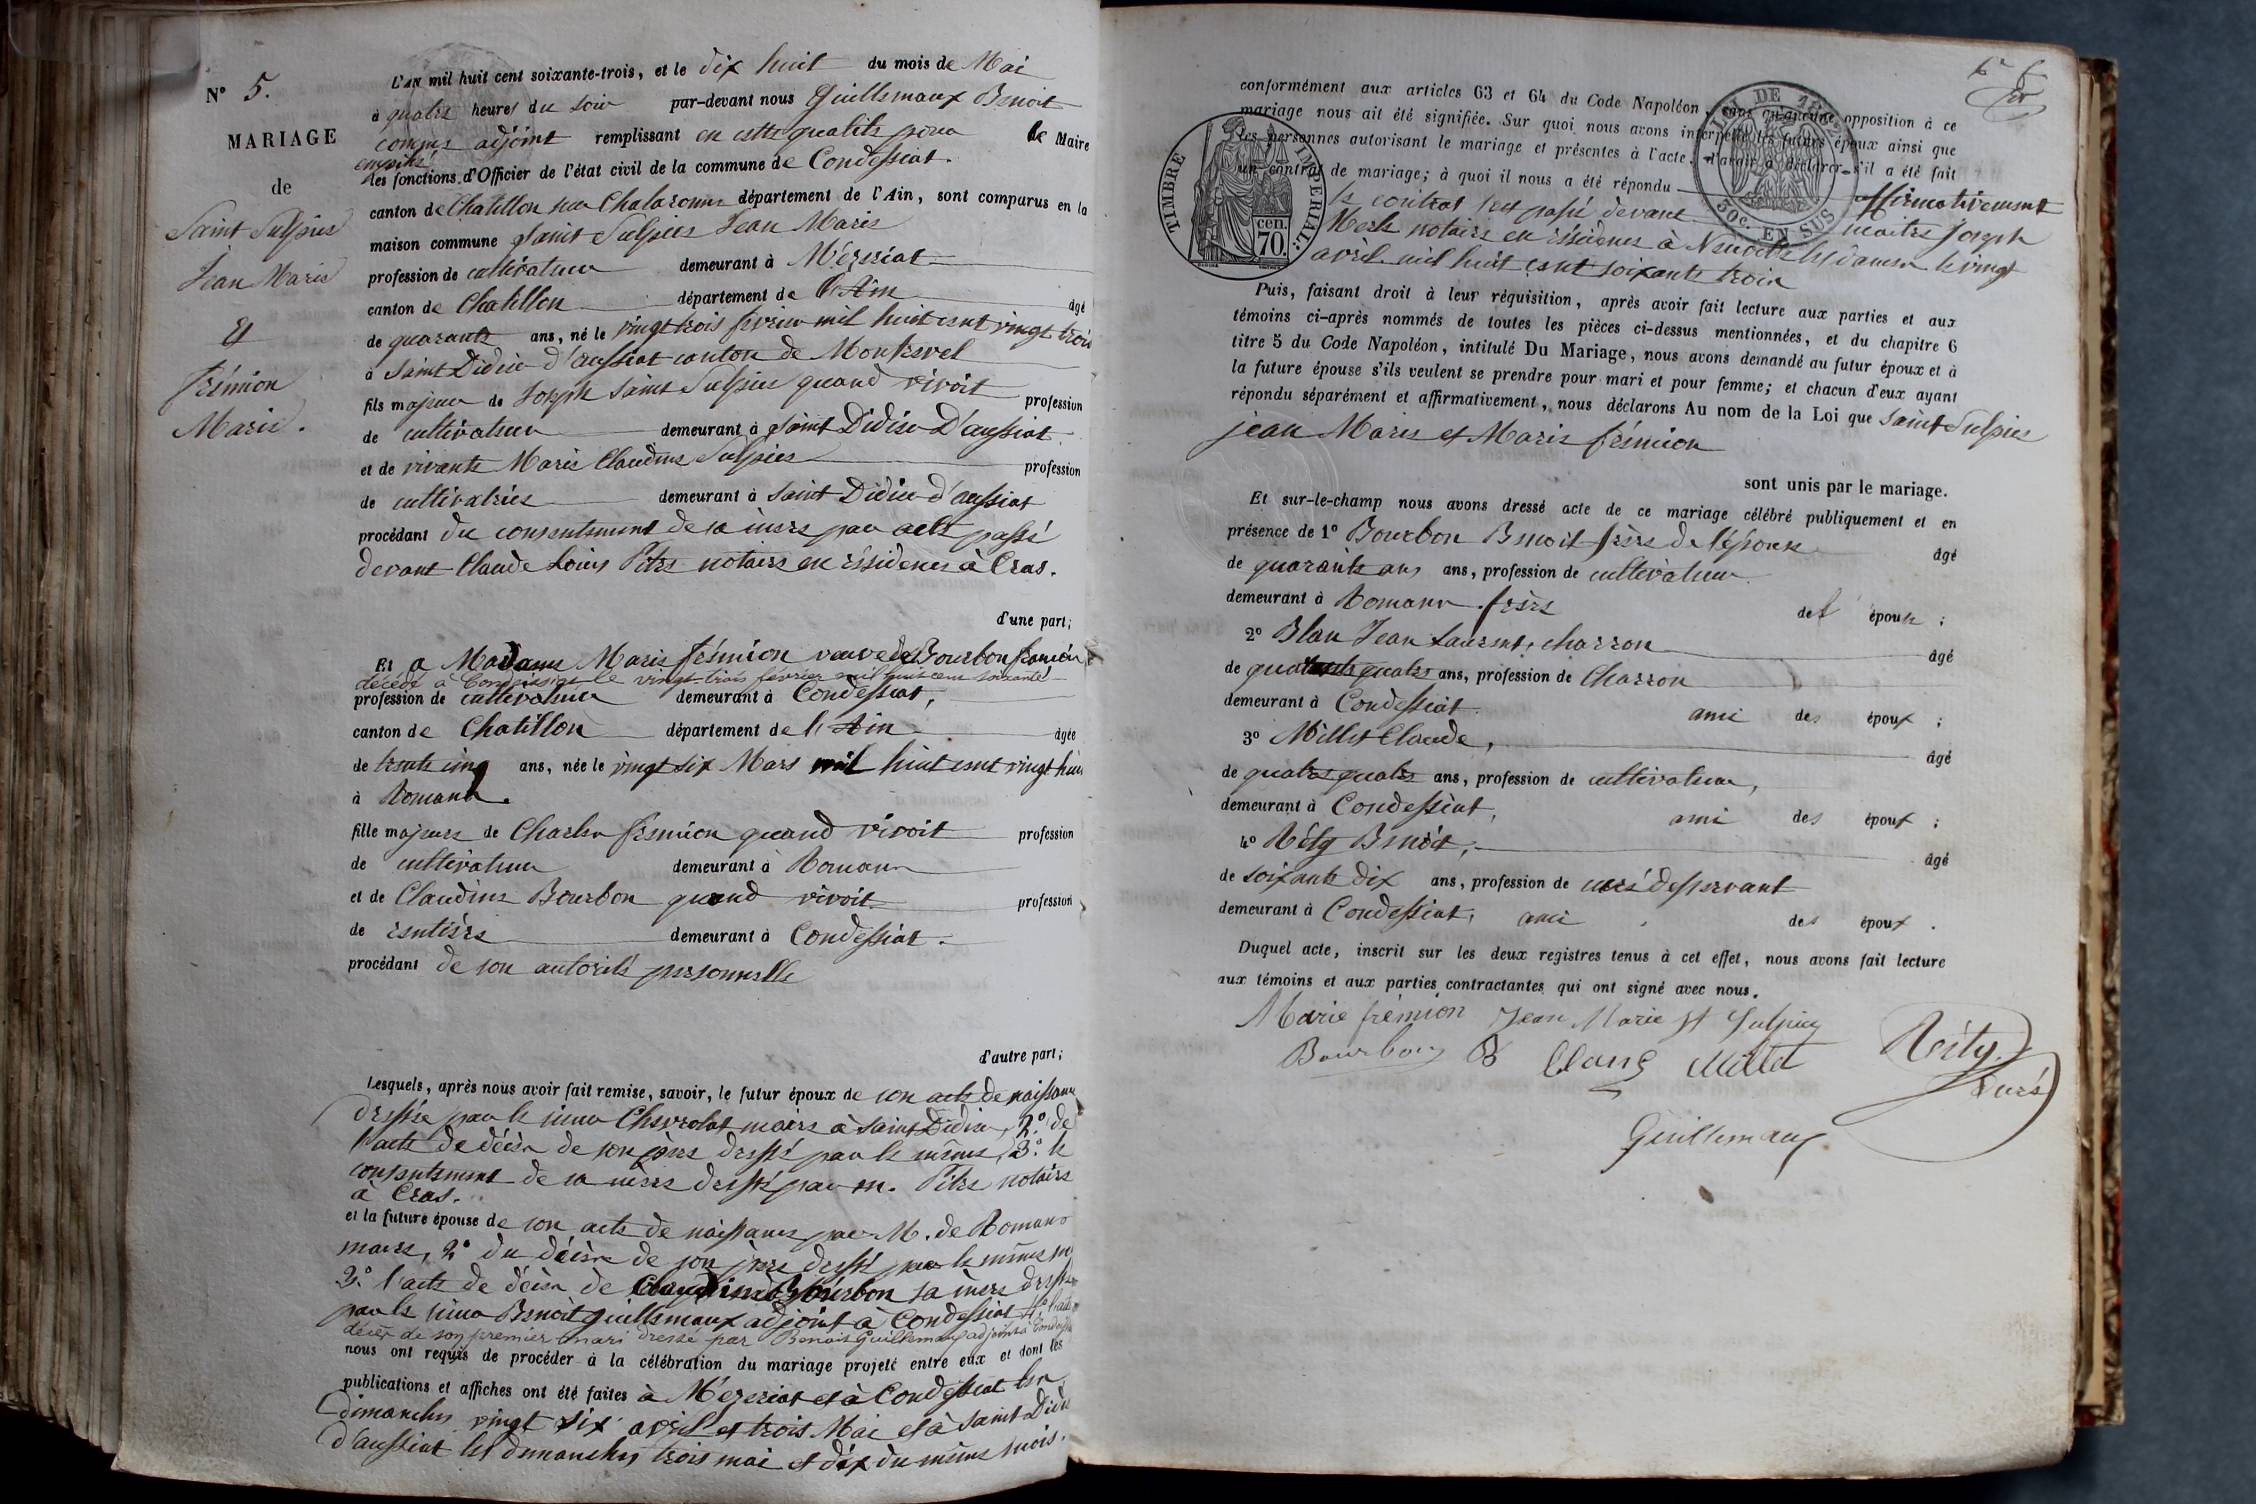 N° 5.
MARIAGE
de
Saint Sulpice
Jean Marie
Et
frémion
Marie.
L'AN mil huit cent soixante-trois, et le dix huit du mois de Mai
à quatre heures du soir par-devant nous Guillemaux Benoit
comme adjoint remplissant en cette qualité pour le Maire
empêché
les fonctions d'Officier de l'état civil de la commune de Condeissiat.
canton de Chatillon sur Chalaronne département de l'Ain, sont comparus en la
maison commune Saint Sulpice Jean Marie
profession de cultivateur demeurant à Mézériat
canton de Chatillon département de l'Ain âgé
de quarante ans, né le vingt trois février mil huit cent vingt trois
à Saint Didier d'aussiat canton de Montrevel
fils majeur de Joseph Saint Sulpice quand vivoit profession
de cultivateur demeurant à Saint Didier D'aussiat
et de vivante Marie Claudine Sulpice profession
de cultivatrice demeurant à Saint Didier d'aussiat
procédant du consentement de sa mère par acte passé
devant Claude Louis Pitre notaire en résidence à Cras.
d'une part;
Et a Madame Marie frémion veuve de Bourbon françois
décédé à Condeissiat le vingt trois février mil huit cent soixante
profession de cultivateur demeurant à Condessiat,
canton de Chatillon département de l'Ain âgée
de trente cinq ans, née le vingt six Mars mil huit cent vingt huit
à Romans.
fille majeure de Charles frémion quand vivoit profession
de cultivateur demeurant à Romans
et de Claudine Bourbon quand vivoit profession
de rentière demeurant à Condessiat.
procédant de son autorité personnelle
d'autre part;
Lesquels, après nous avoir fait remise, savoir, le futur époux de son acte de naissance
dressée par le sieur Chevrolat maire à Saint Didier, 2° de
l'acte de décès de son père dressé par le même, 3° le
consentement de sa mère dressé par m. Pitre notaire
à Cras.
et la future épouse de son acte de naissance par M. de Romans
maire, 2° du décès de son père dressé par le même
3° l'acte de décès de Claudine Bourbon sa mère dressé
par le sieur Benoit Guillemaux adjoint à Condessiat 4° l'acte
décès de son premier mari dressé par Benoit Guillemaux adjoint à Condeissiat
nous ont requis de procéder à la célébration du mariage projeté entre eux et dont les
publications et affiches ont été faites à Mézériat et à Condessiat les
dimanches vingt six avril et trois Mai et à Saint Didier
d'aussiat les dimanches trois mai et dix du même mois.
conformément aux articles 63 et 64 du Code Napoléon, sans qu'aucune opposition à ce
mariage nous ait été signifiée. Sur quoi nous avons interpellé les futurs époux ainsi que
les personnes autorisant le mariage et présentes à l'acte, d'avoir à déclarer s'il a été fait
un contrat de mariage; à quoi il nous a été répondu affirmativement
le contrat s'est passé devant maitre Joseph
Merle notaire en résidence à Neuville les dames le vingt
avril mil huit cent soixante trois
TIMBRE IMPÉRIAL.
70. cen.
LOI DE 1862
50c. EN SUS
Puis, faisant droit à leur réquisition, après avoir fait lecture aux parties et aux
témoins ci-après nommés de toutes les pièces ci-dessus mentionnées, et du chapitre 6
titre 5 du Code Napoléon, intitulé Du Mariage, nous avons demandé au futur époux et à
la future épouse s'ils veulent se prendre pour mari et pour femme; et chacun d'eux ayant
répondu séparément et affirmativement, nous déclarons Au nom de la Loi que Saint Sulpice
jean Marie et Marie frémion
sont unis par le mariage.
Et sur-le-champ nous avons dressé acte de ce mariage célébré publiquement et en
présence de 1° Bourbon Benoit frère de l'épouse âgé
de quarante ans ans, profession de cultivateur
demeurant à Romans. frère de l' épouse ;
2° Blan Jean Laurent, charron âgé
de quarante quatre ans, profession de Charron
demeurant à Condessiat. ami des époux ;
3° Millet Claude, âgé
de quatre quatre ans, profession de cultivateur,
demeurant à Condessiat, ami des époux ;
4° Réty Benoit, âgé
de soixante dix ans, profession de curé desservant
demeurant à Condessiat, ami des époux .
Duquel acte, inscrit sur les deux registres tenus à cet effet, nous avons fait lecture
aux témoins et aux parties contractantes qui ont signé avec nous.
Marie frémion Jean Marie St Sulpice
Bourbon B Blanc Millet Réty
Curé
Guillemaux